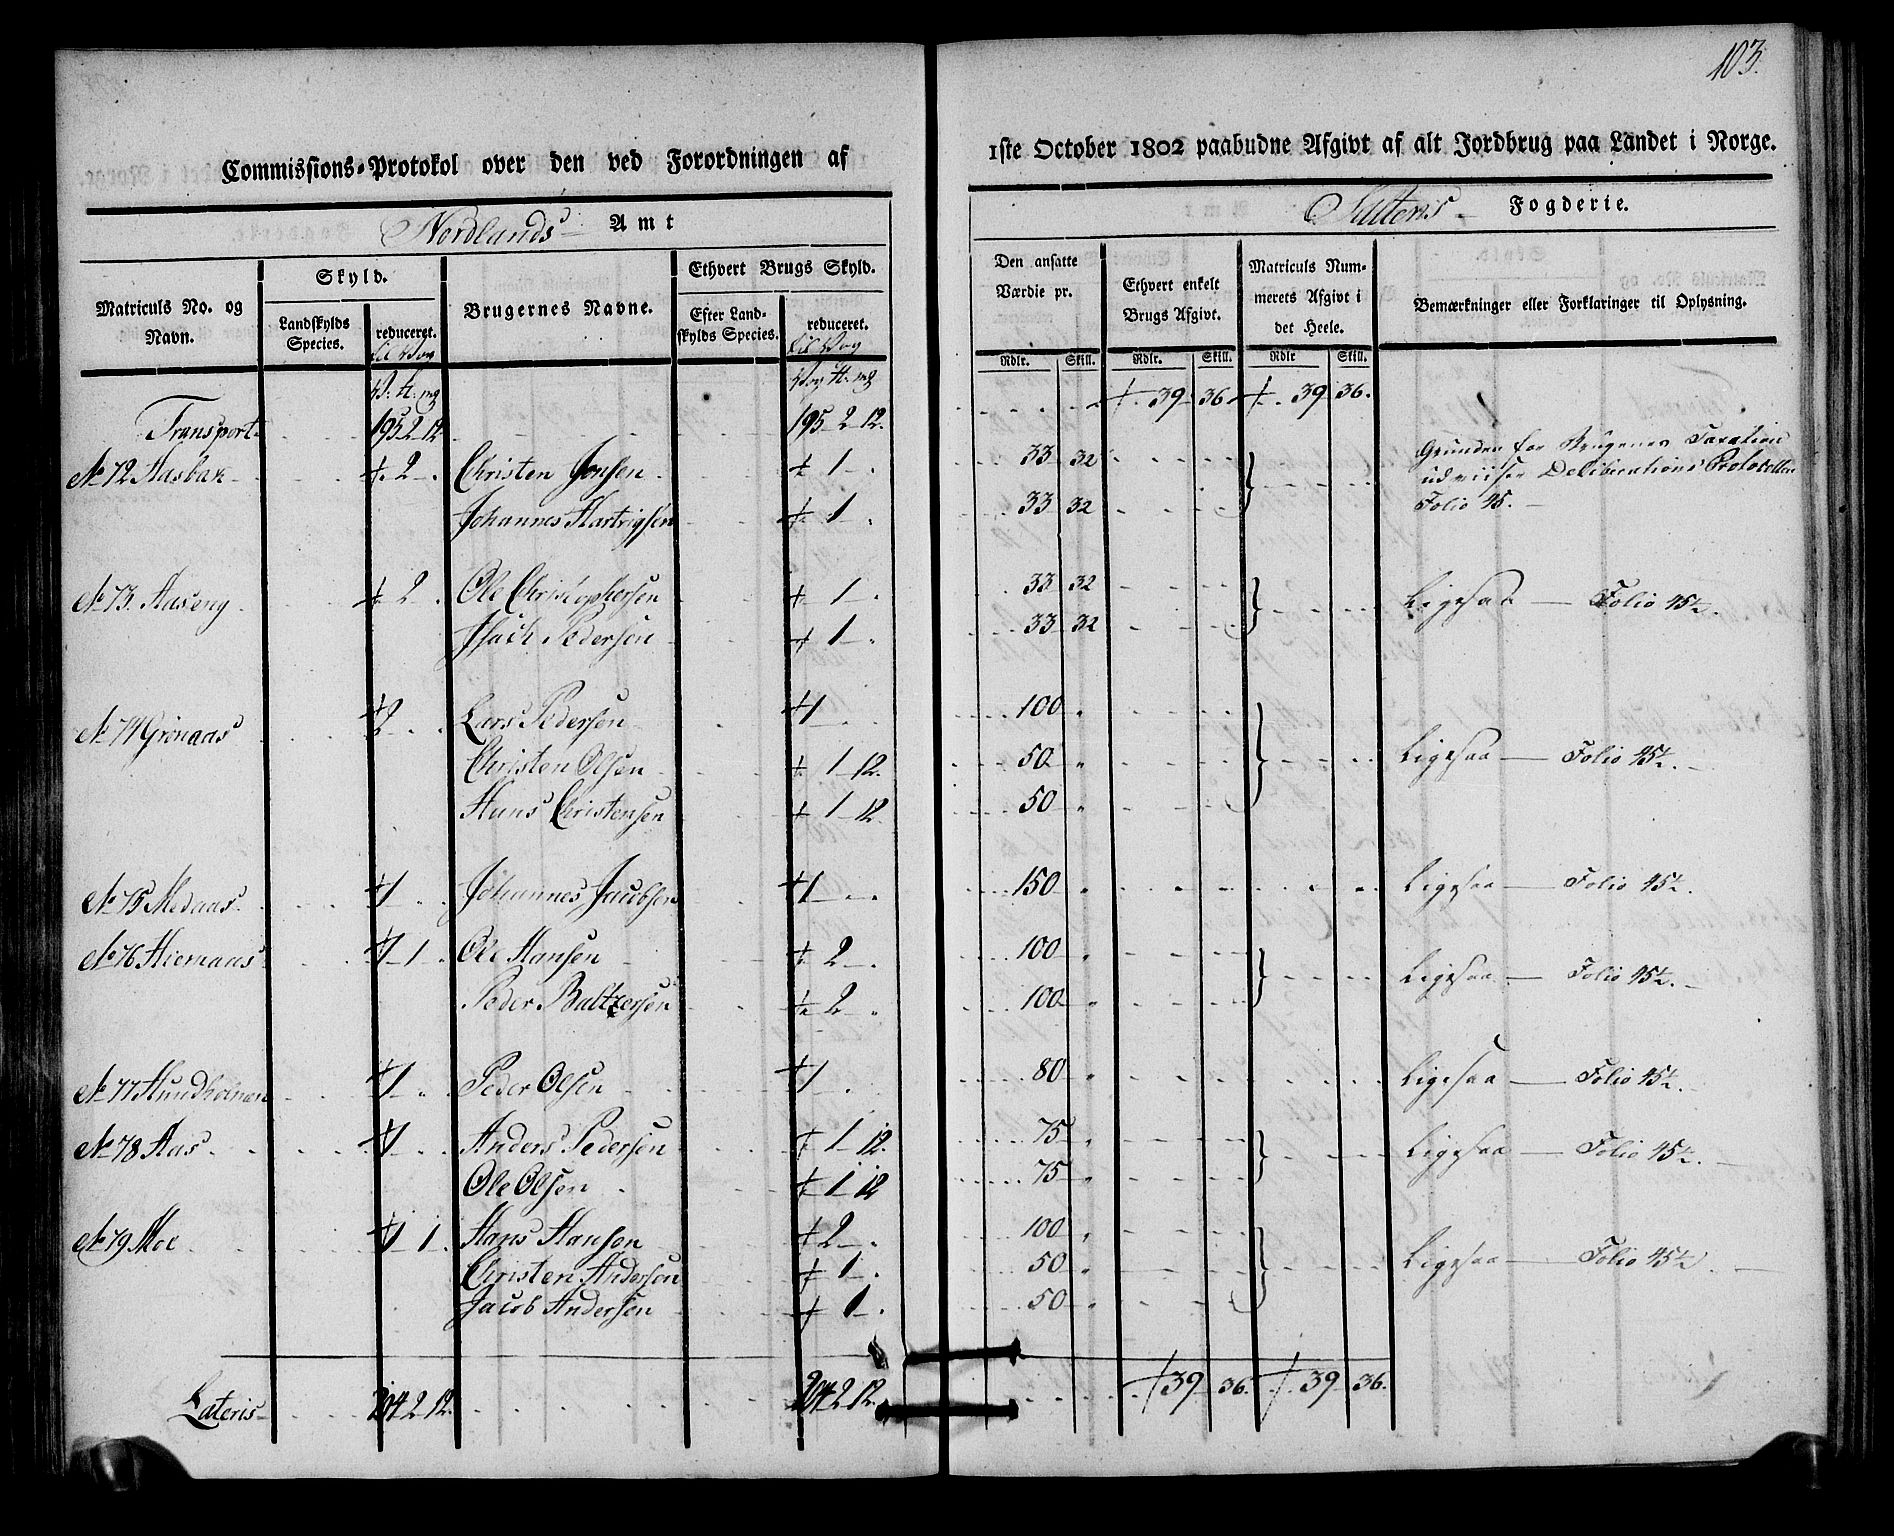 103.
Commissions-Protokol over den ved Forordningen af 1ste October 1802 paabudne Afgivt af alt Jordbrug paa Landet i Norge.
Nordlands Amt
Saltens Fogderie.
Matriculs No. og Navn.
Skyld.
Landskylds Species.
reduceret.
til Vog
Brugernes Navne.
Ethvert Brugs Skyld.
Efter Landskylds Species.
reduceret.
til Vog
Den ansatte Værdie pr.
Ethvert enkelt Brugs Afgivt.
Matriculs Nummerets Afgivt i det Heele.
Bemærkninger eller Forklaringer til Oplysning.
Rdlr. Skill. Rdlr. Skill. Rdlr Skill.
Transport 195 2 12 195 2 12. 39 36 39 36.
No 72 Aasbak 2 Christen Jensen 1 33 32 Grunden for Brugenes Taxation
udviiser Deliberations Protokollen
Johannes Hartvigsen 1 33 32 Folio 45.
No 73. Aaseng 2 Ole Christophersen 1 33 32 Ligesaa Folio 45½.
Isach Pedersen 1 33 32
No 74 Grønaas Lars Pedersen 1 100 Ligesaa Folio 45½.
Christen Olsen 1 12. 50
Hans Christensen 1 12. 50
No 75 Medaas. 1 Johannes Jacobsen 1 150 Ligesaa Folio 45½.
No 76 Hiernaas 1 1 Ole Hansen 2 100 Ligesaa Folio 45½.
Peder Baltzersen 2 100
No 77 Hundholmen 1 Peder Olsen 1 80 Ligesaa Folio 45½.
No 78 Aas 1 Anders Pedersen 1 12. 75 Ligesaa Folio 45½.
Ole Olsen 1 12 75
No 79 Moe 1 1 Hans Hansen 2 100 Ligesaa Folio 45½.
Christen Andersen 1 50
Jacob Andersen 1 50
Lateris 204 2 12. 204 2 12. 39 36. 39 36.